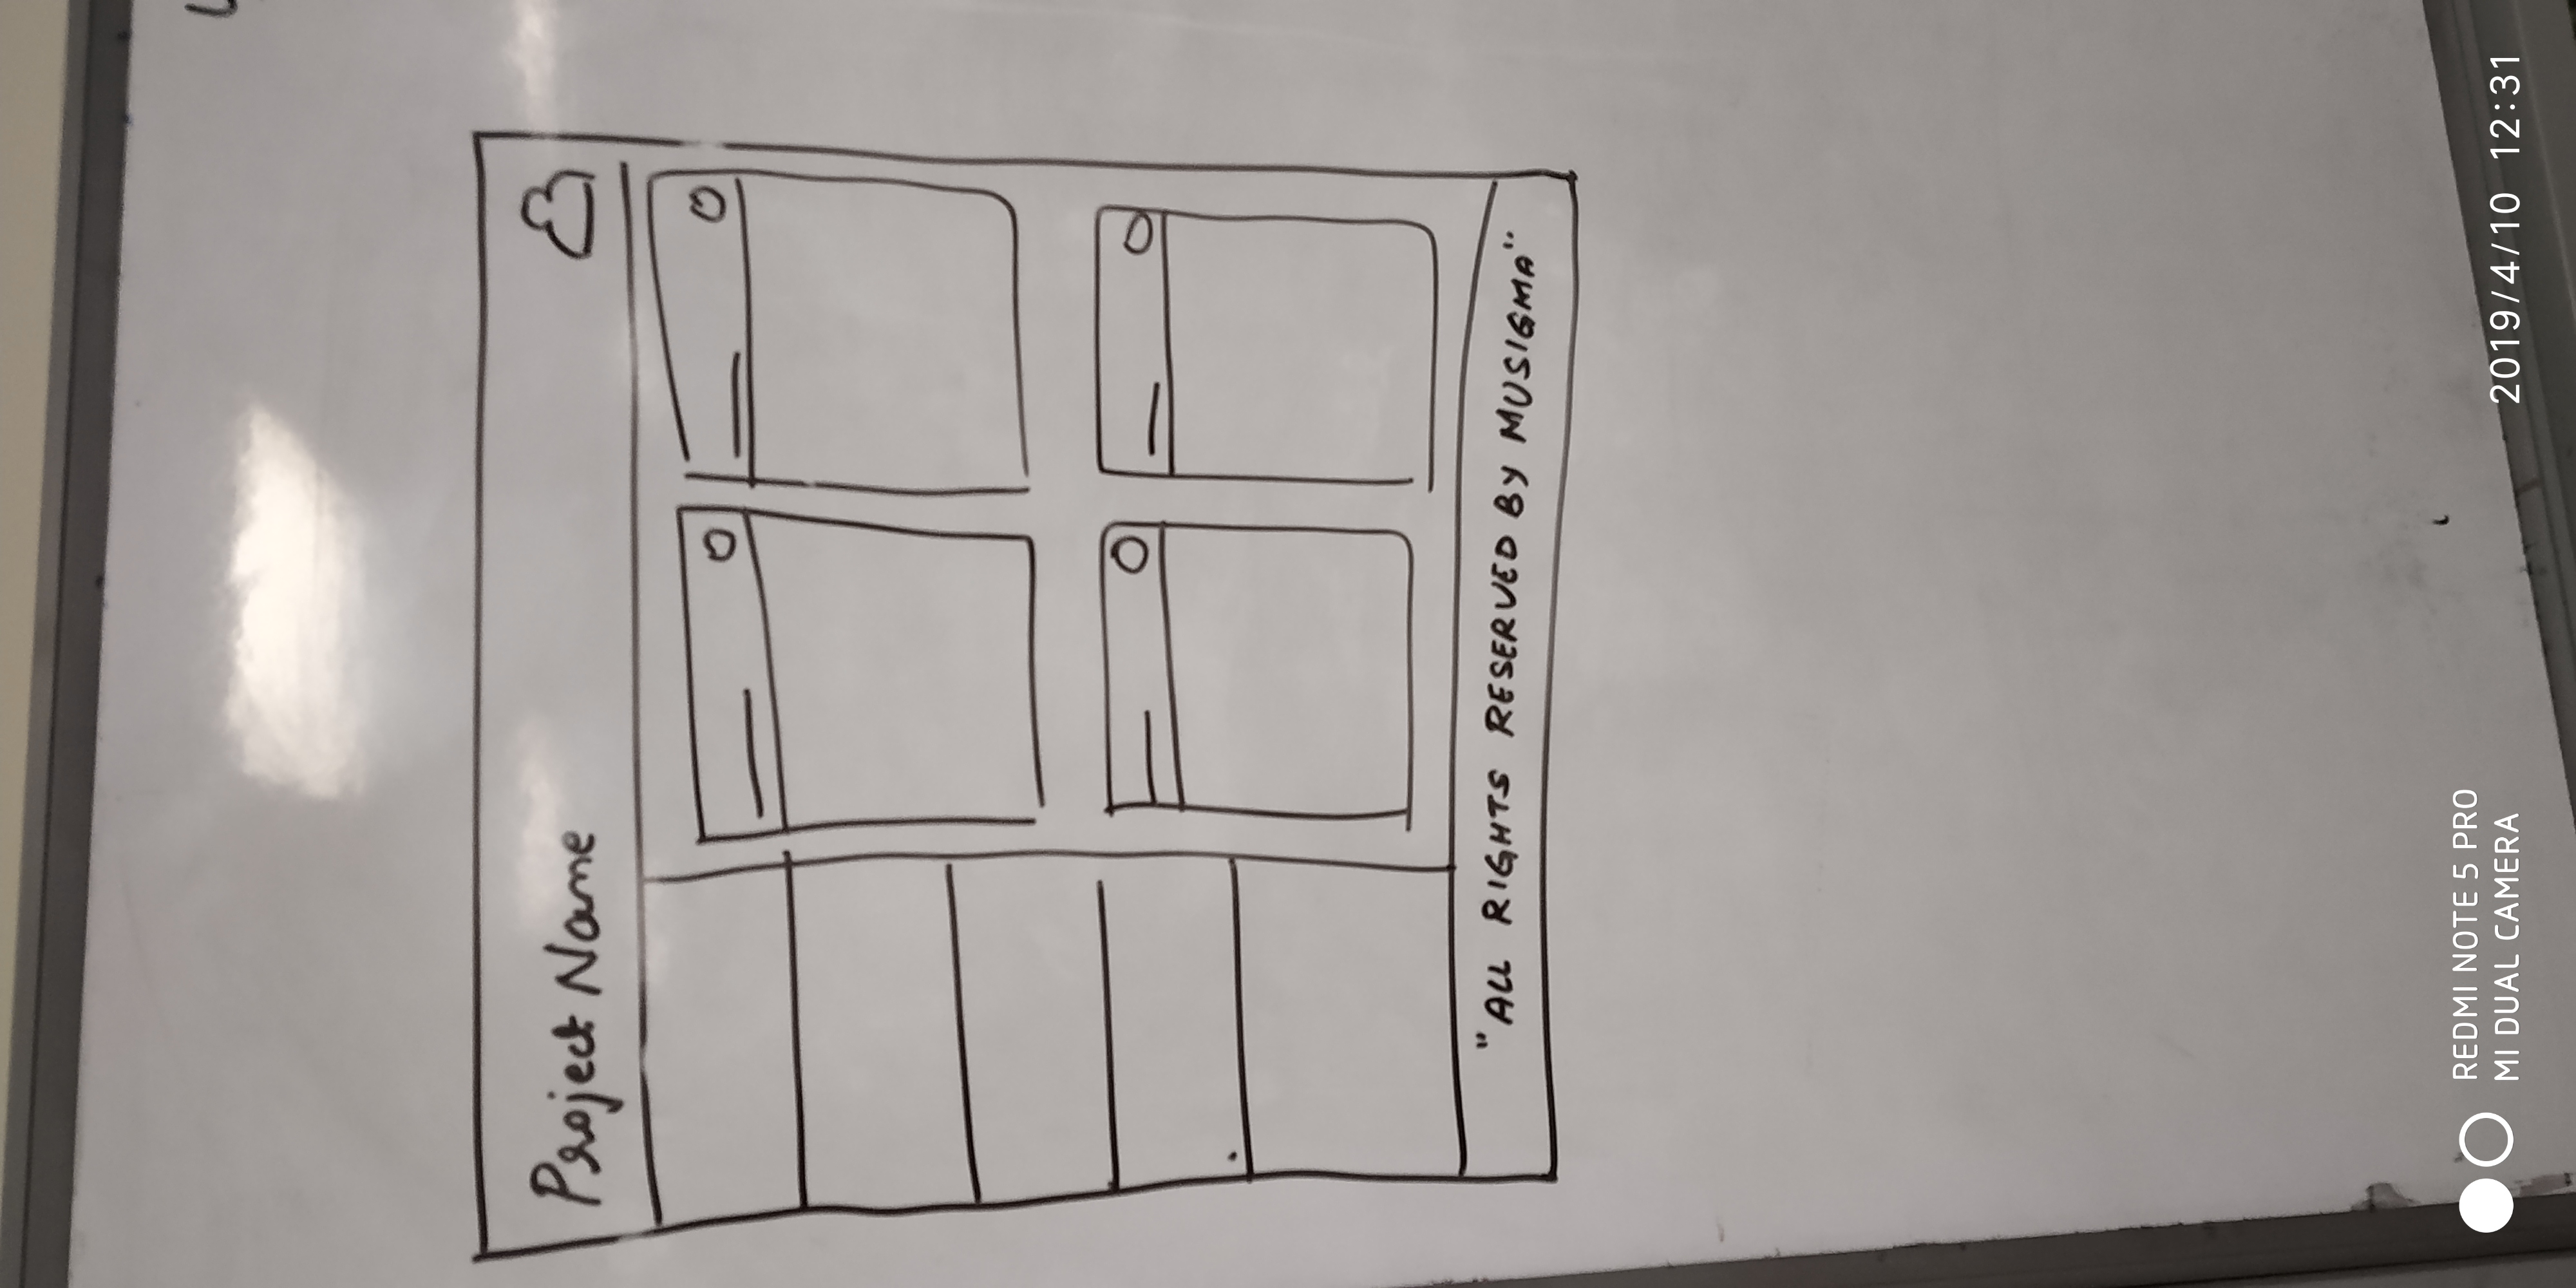 Project Name
"ALL RIGHTS RESERVED BY MUSIGMA"
REDMI NOTE 5 PRO
MI DUAL CAMERA
2019/4/10 12:31